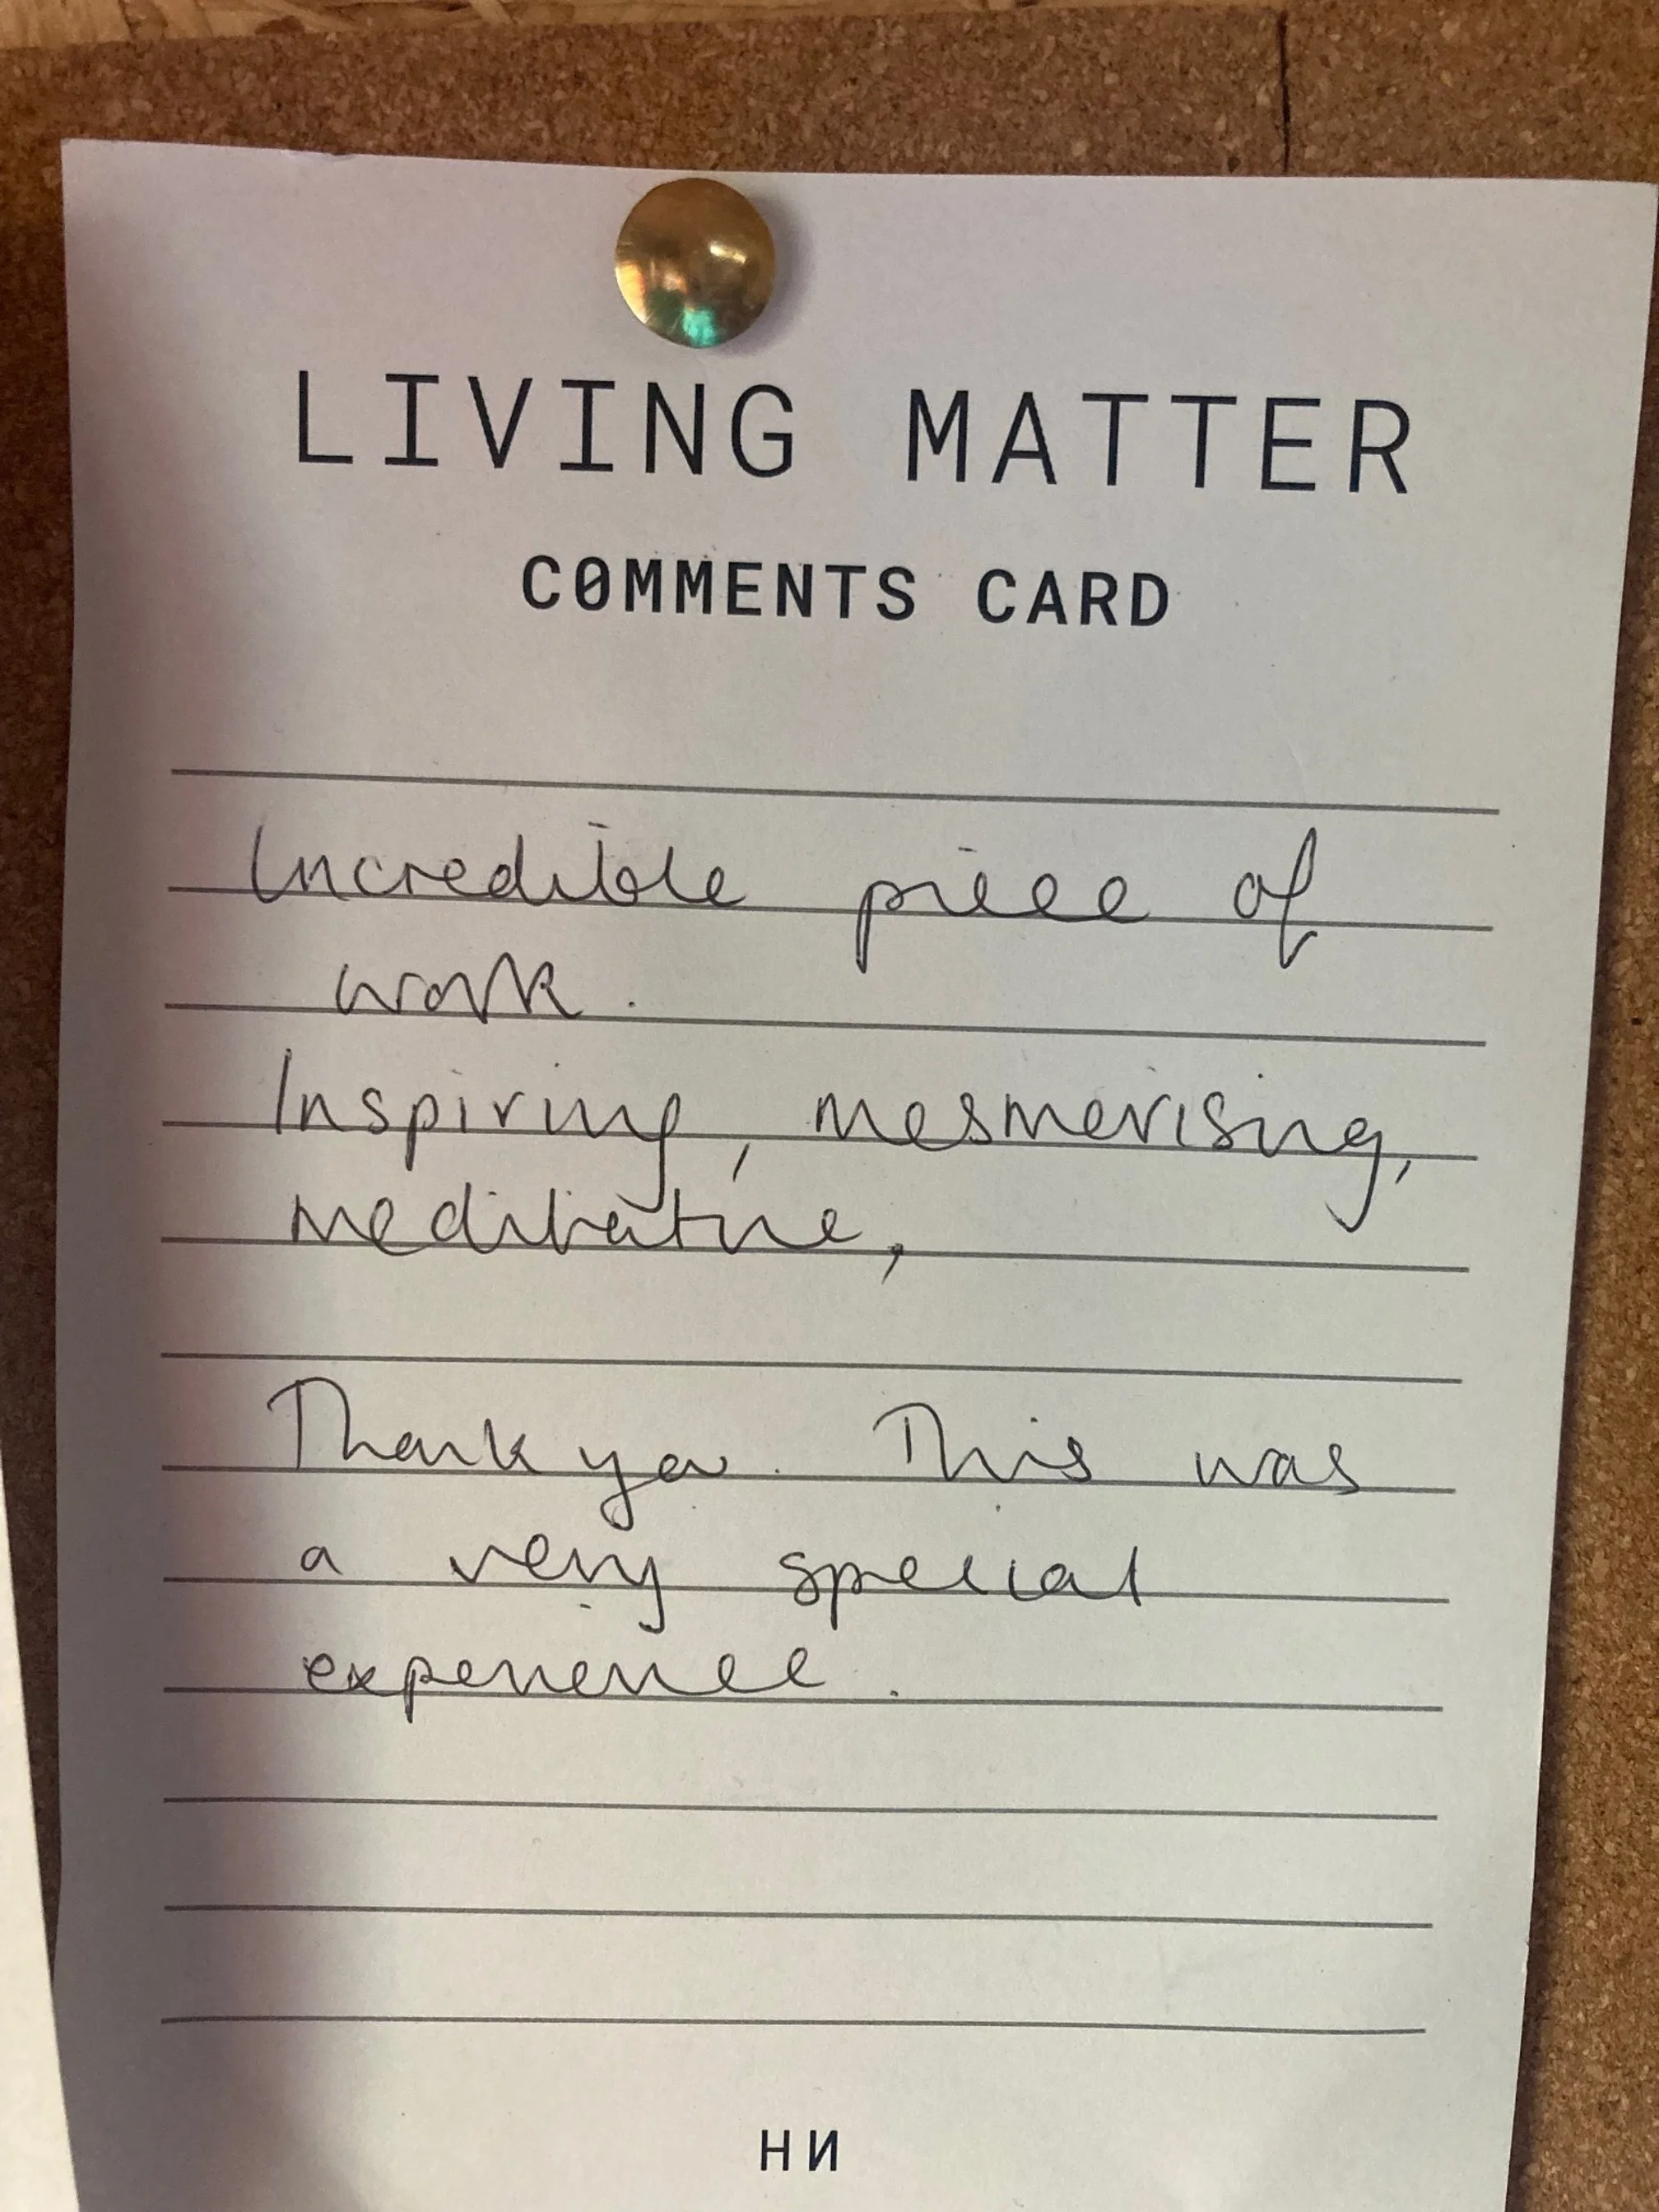 LIVING MATTER
COMMENTS CARD
Incredible piece of
work.
Inspiring, mesmerising,
meditative,
Thank you. This was
a very special
experience.
HИ